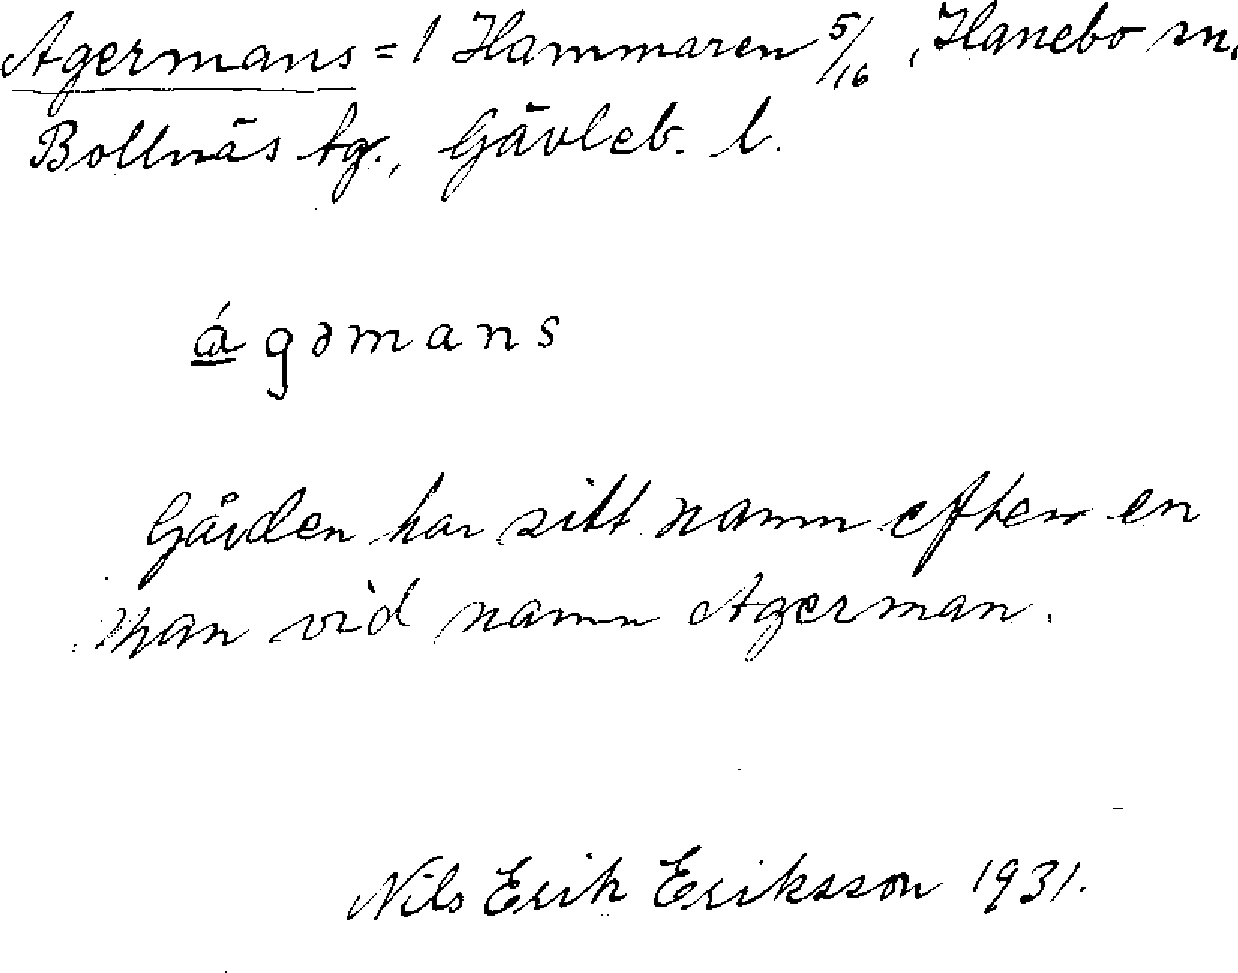 Agermans = 1 Hammaren 5/16, Hanebo sn.
Bollnäs tg., Gävleb. l.
á gəmans
Gården har sitt namn efter en
man vid namn Agerman.
Nils Erik Eriksson 1931.